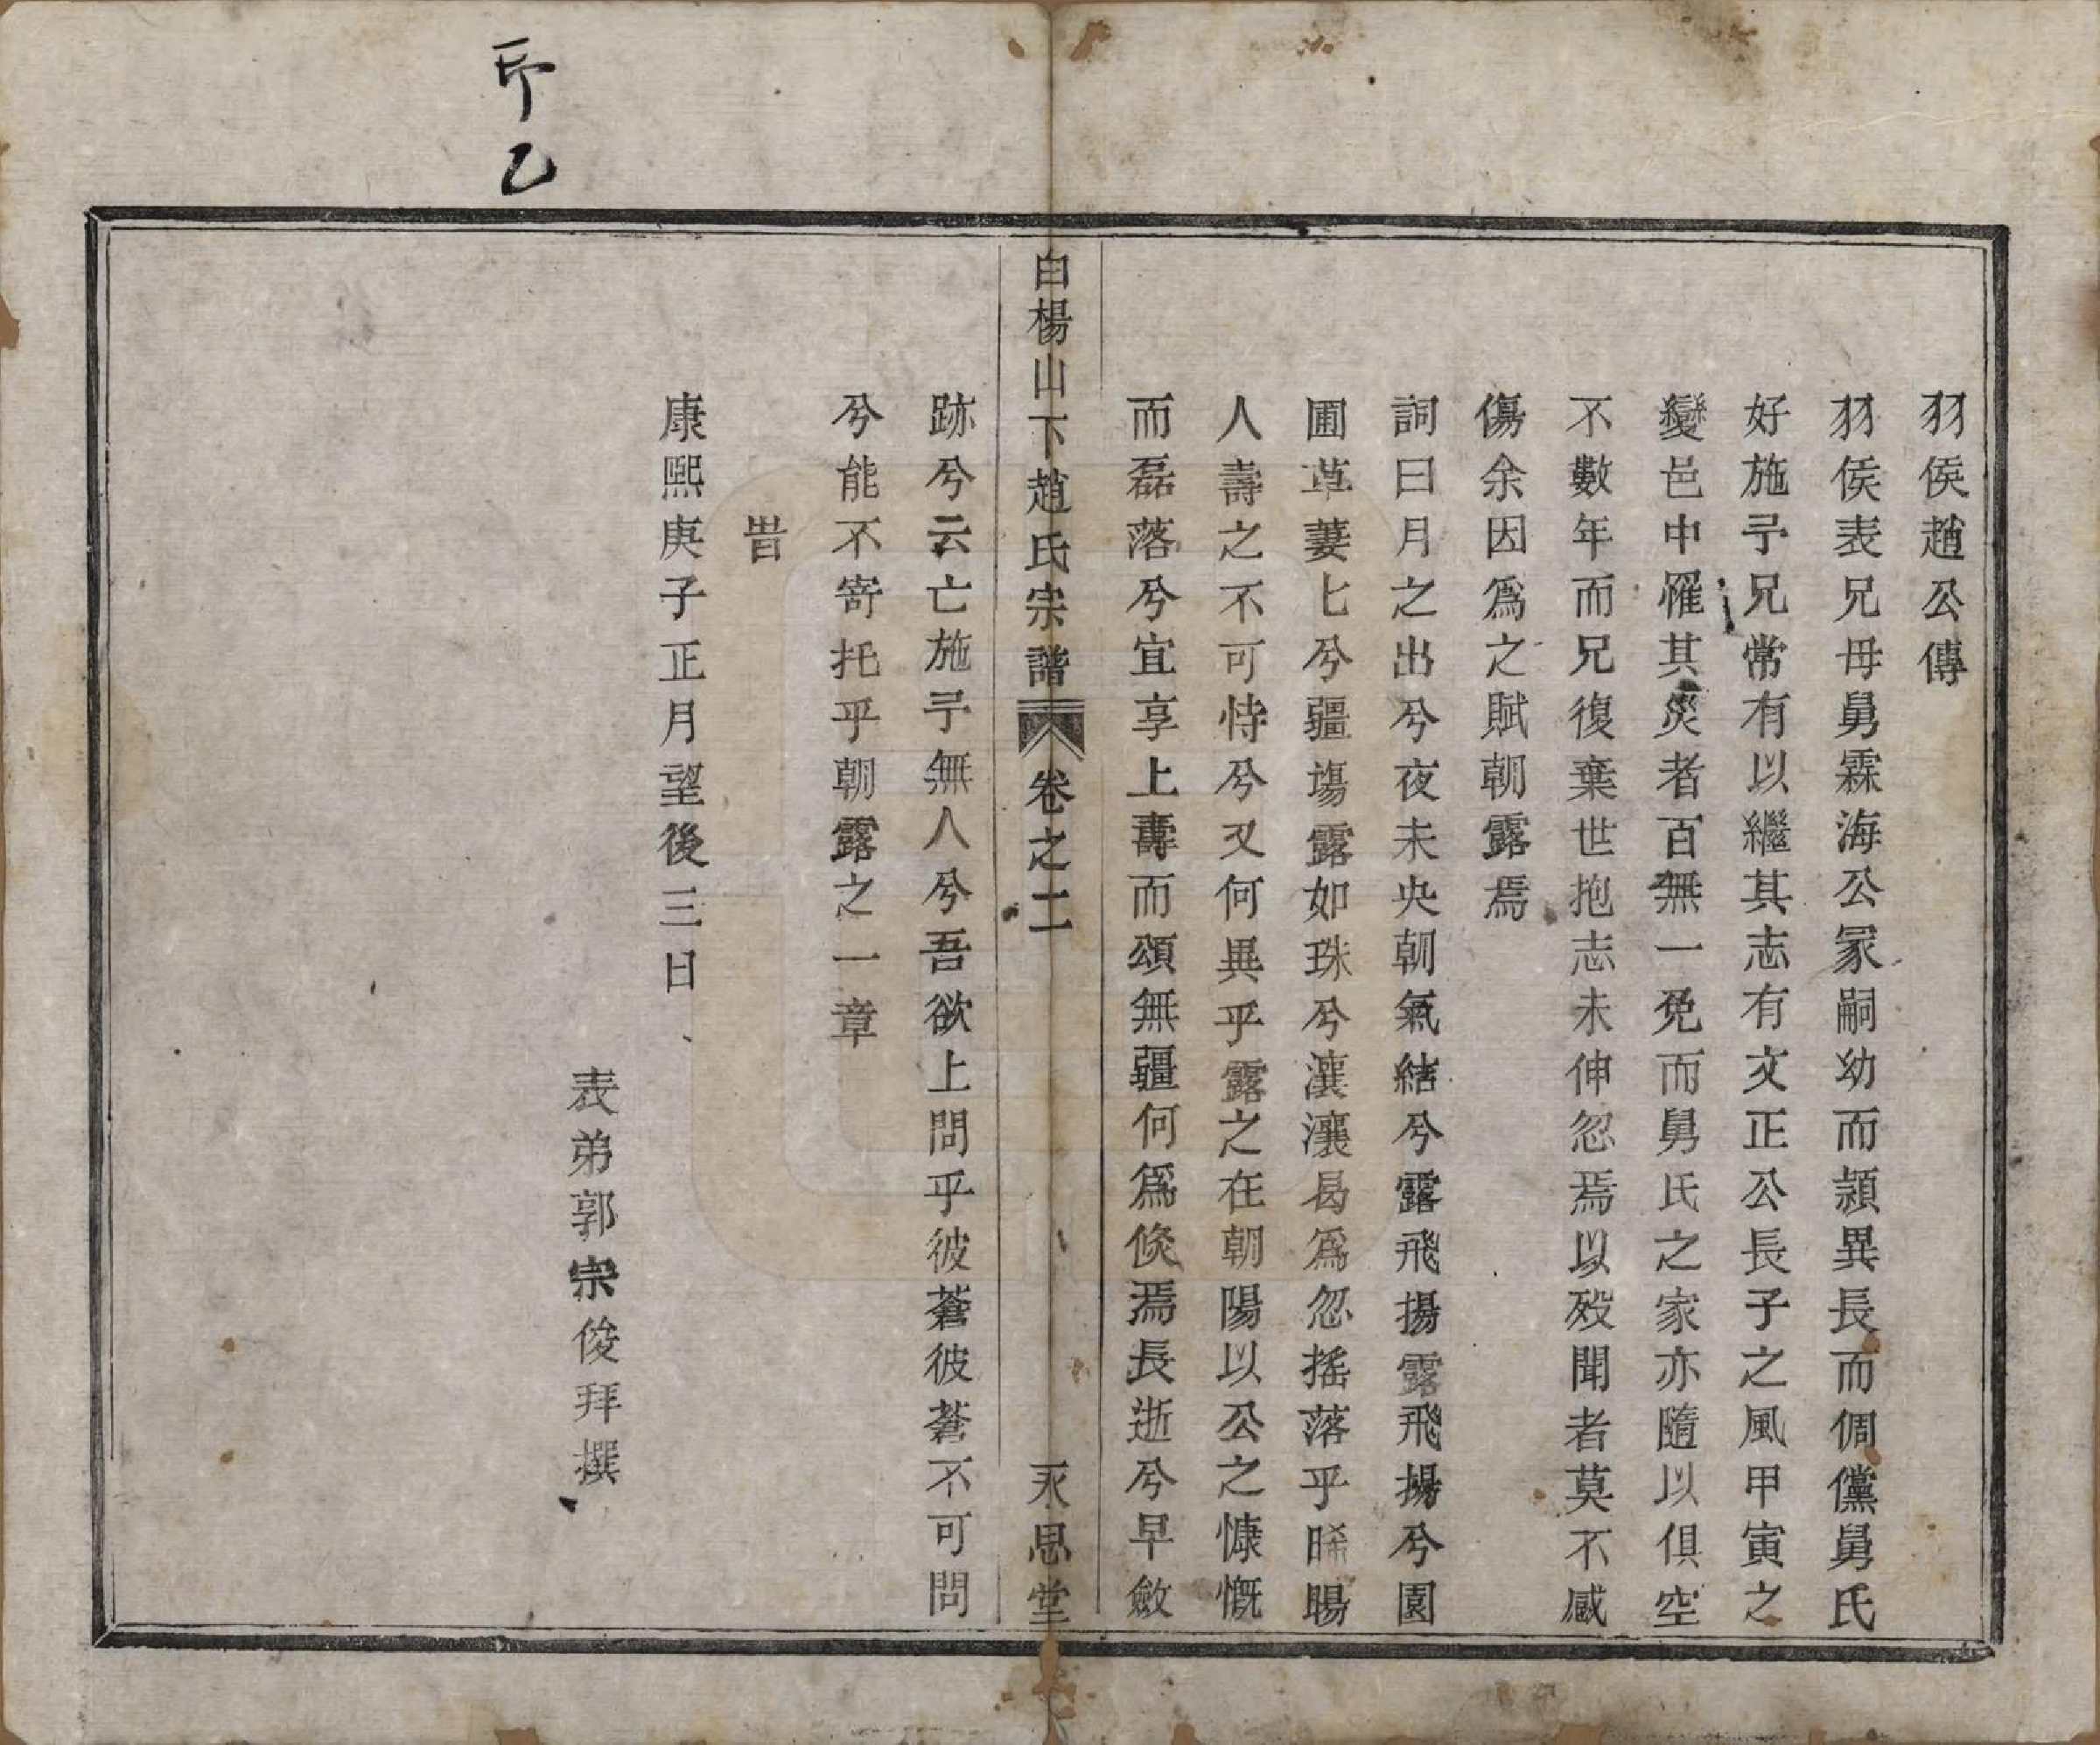 羽侯趙公傳
羽侯表兄母舅霖海公冡嗣幼而頴異長而倜儻舅氏
好施予兄常有以繼其志有文正公長子之風甲寅之
變邑中罹其災者百無一免而舅氏之家亦隨以俱空
不數年而兄復棄世抱志未伸忽焉以殁聞者莫不感
傷余因爲之賦朝露焉
詞曰月之出兮夜未央朝氣結兮露飛揚露飛揚兮園
圃草萋匕兮疆塲露如珠兮瀼瀼曷爲忽搖落乎晞暘
人壽之不可恃兮又何異乎露之在朝陽以公之慷慨
而磊落兮宜享上壽而頌無疆何爲倐焉長逝兮早斂
跡兮云亡施予無人兮吾欲上問乎彼蒼彼蒼不可問
兮能不寄托乎朝露之一章
旹
康熙庚子正月望後三日
表弟郭宗俊拜撰
白楊山下趙氏宗譜 卷之二 永思堂
乙